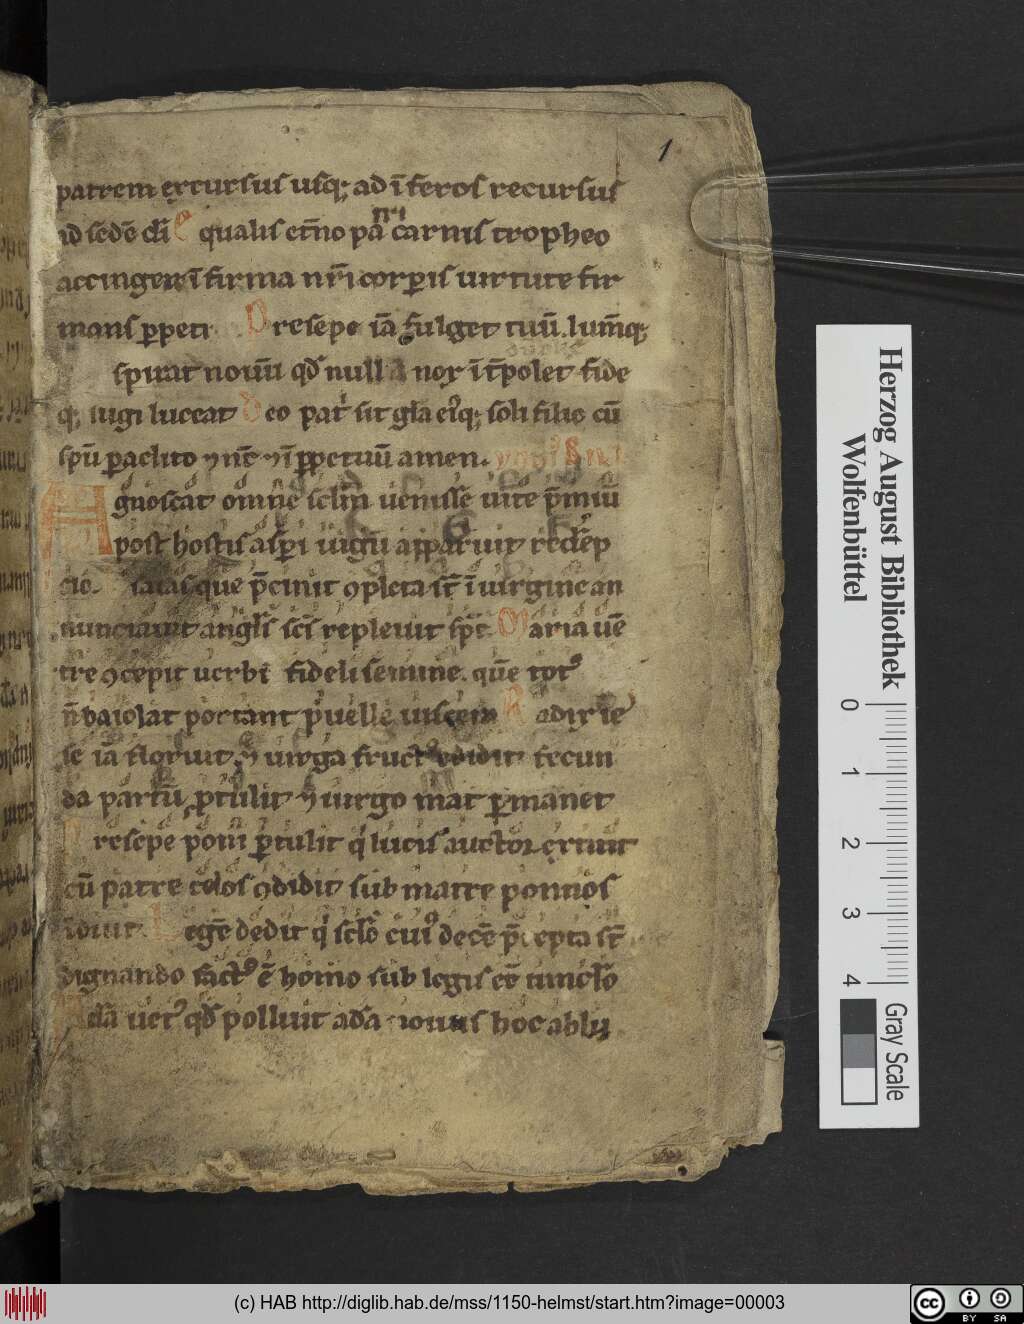 1
patrem excursus usq; ad īferos recursus
ad sedē di̅ e qualis et̄no pa nri carnis tropheo
accingere īfirma nr̄i corꝑis uirtute fir
mans ꝑpeti Presepe iā fulget tuū. lum̄q;
spirat nouū qd̄ null a nox īt̄polet fide
q; iugi luceat Deo pat̓ sit gl̄a ei̓q; soli filio cū
sp̄u ꝑaclito ⁊ nc̄ ⁊ ī ꝑpetuū amen.
Agnoscat omne sclm̄ uenisse uite p̄miū
post hostis asꝑi iugū apparuit redēp
cio. isaias que p̄cinit ↄpleta st̄ ī uirgine an
nunciauit angl̓s scs̄ repleuit sp̄c. Maria uē
tre ↄcepit uerbi fideli semine. quē tot᷒
n̄ baiolat portant puelle uiscera Radix ie
se iā floruit ⁊ uirga fruct᷒ edidit fecun
da partū ꝓtulit ⁊ uirgo mat̓ ꝑmanet
Presepe poni ꝑtulit q̓ lucis auctor extitit
cū patre celos ↄdidit sub matre pannos
īduit. Legē dedit q̓ sclo̅ cui᷒ decē p̄cepta st̄
dignando fact᷒ ē homo sub legis eē uinclo̅
dā uet᷒ qd̄ polluit adā nouus hoc ablu
Herzog August Bibliothek
Wolfenbüttel
0 1 2 3 4
Gray Scale
(c) HAB http://diglib.hab.de/mss/1150-helmst/start.htm?image=00003
cc BY SA